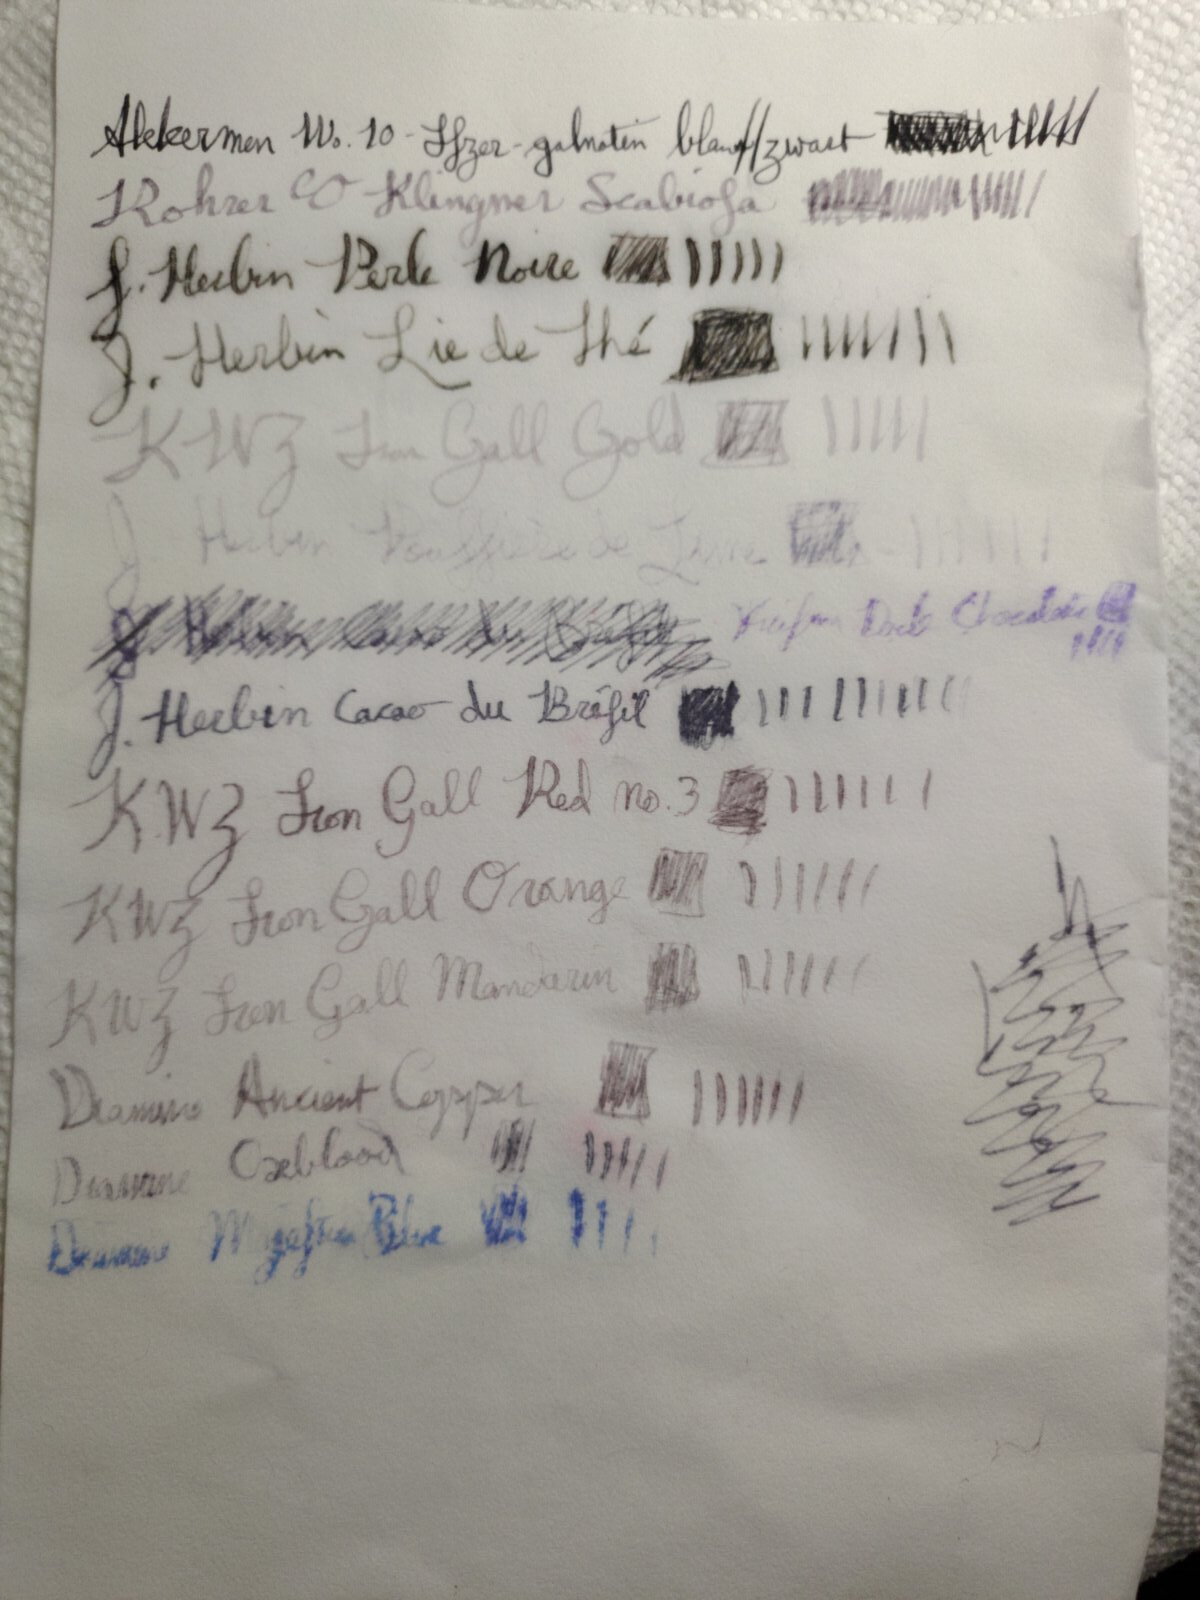 Akkerman No. 10 - IJzer-galnoten blauw/zwart
Rohrer & Klingner Scabiosa
J. Herbin Perle Noire
J. Herbin Lie de Thé
KWZ Iron Gall Gold
J. Herbin Poussière de Lune
Dark Chocolate
J. Herbin Cacao du Brésil
KWZ Iron Gall Red no. 3
KWZ Iron Gall Orange
KWZ Iron Gall Mandarin
Diamine Ancient Copper
Diamine Oxblood
Diamine Majestic Blue